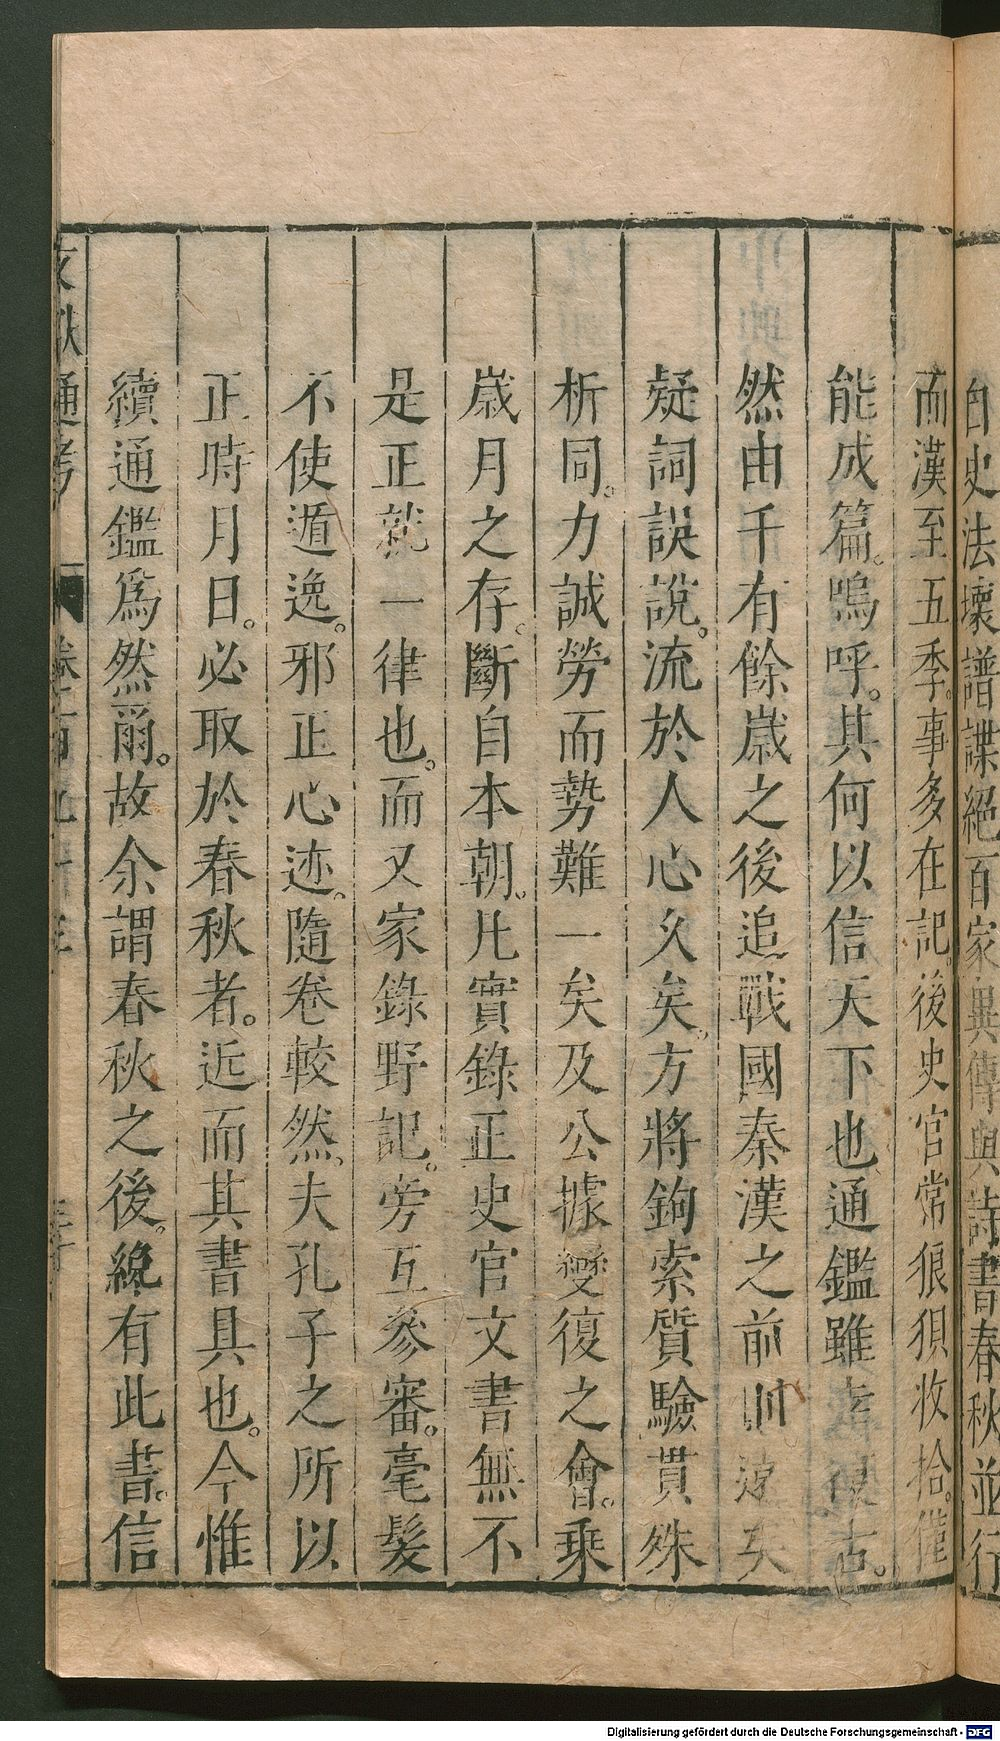 自史法壞譜諜絕百家異傳與詩書春秋並行
而漢至五季。事多在記。後史官常狼狽收拾。僅
能成篇。嗚呼。其何以信天下也、通鑑雖幸復古。
然由千有餘歲之後追戰國秦漢之前則遠矣
疑詞誤說。流於人心久矣。方將鉤索質驗貫殊
析同。力誠勞而勢難一矣及公據變復之會。乗
歲月之存。斷自本朝。凡實錄正史官文書無不
是正就一律也。而又家錄野記。旁互參審。毫髮
不使遁逸。邪正心迹。隨卷較然、夫孔子之所以
正時月日。必取於春秋者。近而其書具也。今惟
續通鑑爲然爾。故余謂春秋之後。纔有此書。信
文獻通考 卷一百九十三
Digitalisierung gefördert durch die Deutsche Forschungsgemeinschaft - DFG